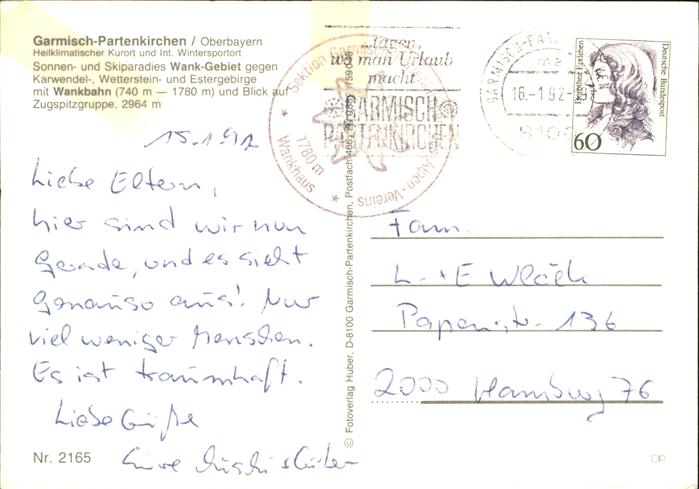 Garmisch-Partenkirchen / Oberbayern
Heilklimatischer Kurort und Int. Wintersportort
Sonnen- und Skiparadies Wank-Gebiet gegen
Karwendel-, Wetterstein- und Estergebirge
mit Wankbahn (740 m — 1780 m) und Blick auf
Zugspitzgruppe, 2964 m
15.1.92
Liebe Eltern,
hier sind wir nun
gerade, und es sieht
genauso aus! Nur
viel weniger Menschen.
Es ist traumhaft.
Liebe Grüße
Eure
Nr. 2165
© Fotoverlag Huber, D-8100 Garmisch-Partenkirchen, Postfach
Sektion Garmisch-
Alpen-Vereins
1780 m
Wankhaus
tagen,
wo man Urlaub
macht
GARMISCH
PARTENKIRCHEN
GARMISCH-PA
16.-1.92-
8100
Deutsche Bundespost
60
Fam.
L. + E
Papenstr. 136
2000 Hamburg 76